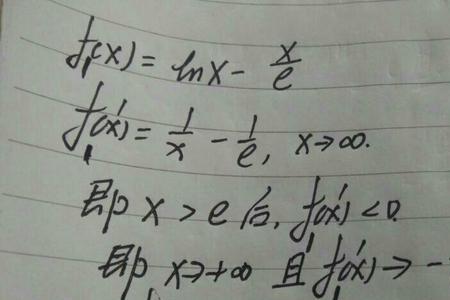 f(x) = lnx - x/e
f'(x) = 1/x - 1/e, x→∞.
即 x > e 后, f'(x) < 0.
即 x→+∞ 且 f'(x) → -